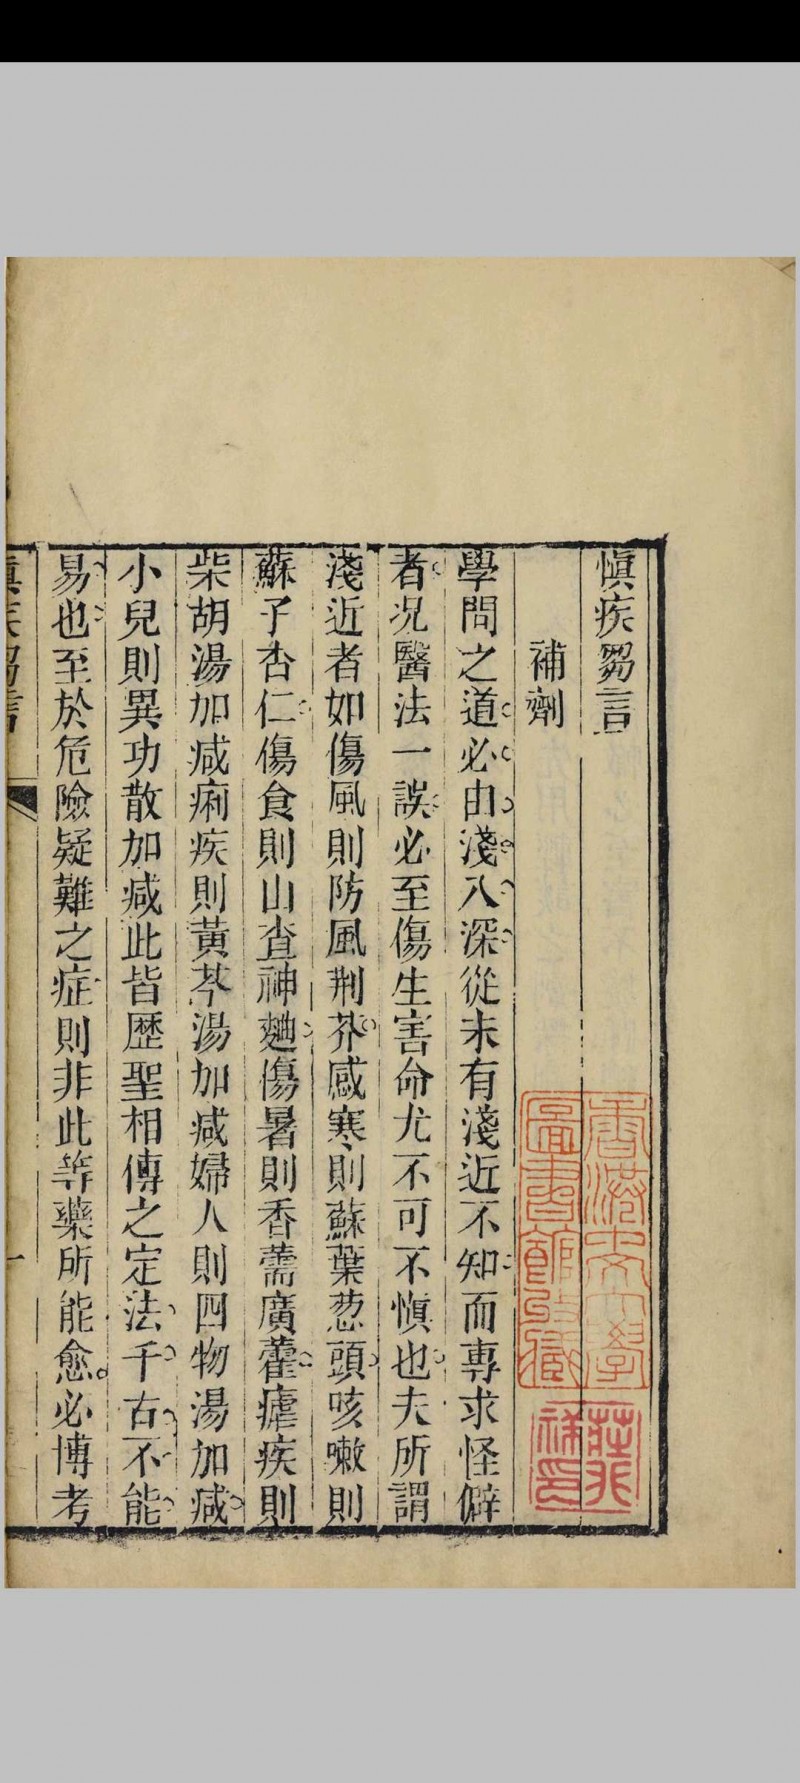 慎疾芻言
補劑
學問之道必由淺入深從未有淺近不知而專求怪僻
者况醫法一誤必至傷生害命尤不可不慎也夫所謂
淺近者如傷風則防風荆芥感寒則蘇葉葱頭咳嗽則
蘇子杏仁傷食則山查神麯傷暑則香薷廣藿瘧疾則
柴胡湯加减痢疾則黃芩湯加减婦人則四物湯加减
小兒則異功散加减此皆歴聖相傳之定法千古不能
易也至於危險疑難之症則非此等藥所能愈必博考
慎疾芻言
一
香港中文大學
圖書館所藏